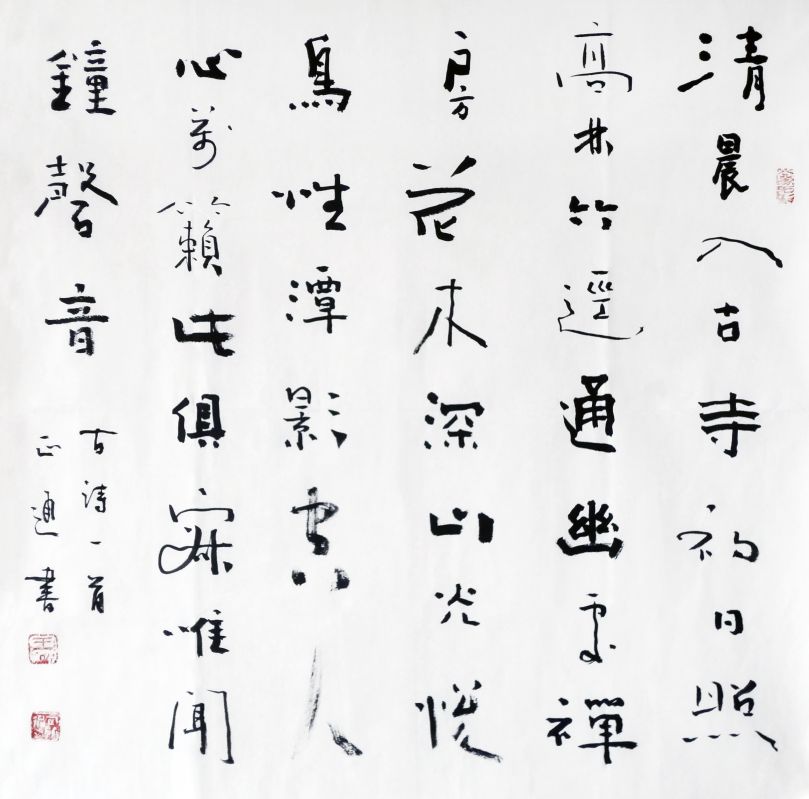 清晨入古寺初日照
高林竹逕通幽處禪
房花木深山光悦
鳥性潭影空人
心萬籟此俱寂唯聞
鐘磬音
古詩一首
正通書